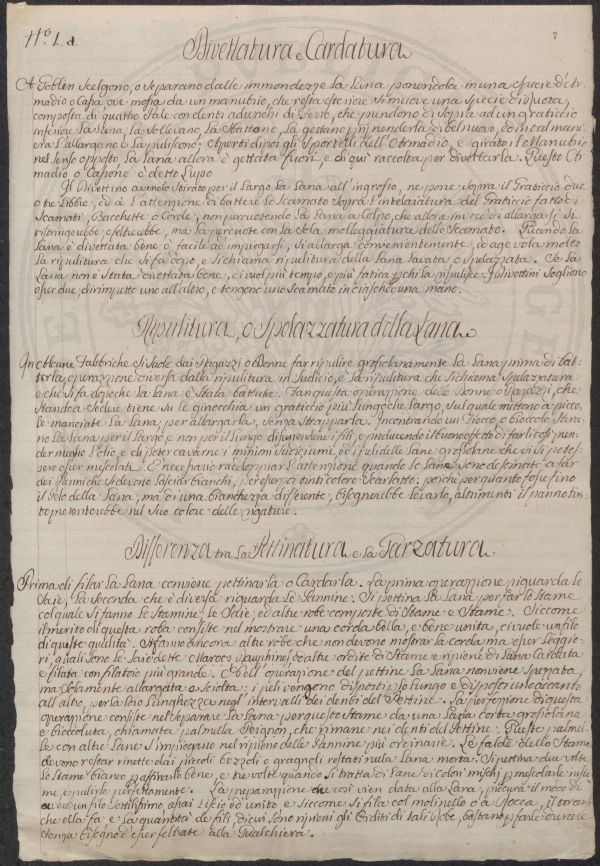 N.° 1. a.
Divettatura e Cardatura
A Goblen Scelgono, o Separano dalle immondezze la Lana ponendola in una Specie d'Ar-
madio o Cassa, ove mossa da un manubrio, che resta esteriore Si muove una Specie di ruota,
composta di quattro Stale con denti adunchi di Ferro, che prendono di Sopra ad un graticcio
inferiore la Lana, la Sollevano, la Sbattono, la gettano p riprenderla di bel nuovo, ed in tal mani-
era S'allargano e la puliscono: Aperti dipoi gli Sportelli dell'Armadio, e girato il Manubrio
nel Senso opposto, la Lana allora è gettata fuori, e di qui raccolta per Divettarla. Questo Ar-
madio o Cassone è detto Lupo
Il Divettino avendo Stirato per il Largo la Lana all'ingrosso, ne pone Sopra il Graticcio due
o tre Libbre, ed à l'attenzione di battere lo Scamato Sopra l'intelaiatura del Graticcio fatto di
Scamati, Bacchette o Corde, non percuotendo la Lana a Colpo, che allora invece di allargarsi Si
ristringerebbe, e feltrerebbe, ma la percuote con la Sola molleggiatura dello Scamato. Quando la
Lana è divettata bene è facile ad impiegarsi, Si allarga convenientemente, ed agevola molto
la ripulitura che Si fa dopo, e Si chiama ripulitura della Lana Lavata o Spelazzata. Se la
Lana non è Stata divettata bene, ci vuol più tempo, e più fatica p chi la ripulisce. I Divettini Sogliono
esser due, dirimpetto uno all'altro, e tengono uno Scamato in ciascheduna mano.
Ripulitura, o Spelazzatura della Lana
In alcune Fabbriche Si Suole dai Ragazzi o Donne far ripulire grossolanamente la Lana prima di bat-
terla, operazione diversa dalla ripulitura in Sudicio, e la ripulitura che Si chiama Spelazzatura
e che Si fa dopo che la Lana è Stata battuta. Fan questa operazione delle Donne o Ragazzi, che
Stando a Sedere tiene Su le ginocchia un graticcio più lungo che largo, Sul quale mettono a poco,
le manciate la Lana, per allargarla, Senza Strapparla. Incontrando un Fiocco o bioccolo Stira-
no la Lana per il Largo, e non per il Lungo distendendo i fili, e producendo il buon effetto di farli così pren-
der meglio l'olio, e di poter cavarne i minimi Sudiciumi, ed i peli delle Lane grossolane che vi Si potes-
sero esser mescolati. È necessario raddoppiar l'attenzione quando le Lane Sono destinate a far
dei Panni che Si devono lasciar bianchi, per esser poi tinti colore Scarlatto: poichè per quanto fosse fino
il Pelo della Lana, ma di una bianchezza differente, bisognerebbe levarlo, altrimenti il panno tin-
to presenterebbe nel Suo colore delle rigature.
Differenza tra la Pettinatura e la Scardatura
Prima di filar la Lana conviene pettinarla o Cardarla. La prima operazione riguarda le
Saie, la Seconda che è diversa riguarda le Pannine. Si pettina la Lana per far lo Stame
col quale Si fanno le Stamine, le Saie, ed altre robe composte di Stame e Stame. Siccome
il merito di questa roba consiste nel mostrare una corda bella, e bene unita, ci vuole un filo
di queste qualità. Si fanno ancora altre robe che non devono mostrar la corda ma esser Leggie-
ri, quali Sono le Saie dette ed altre ordite di Stame e ripiene di Lana Cardata
e filata con filatoio più grande. Nell'operazione del pettine la Lana non viene Spezzata,
ma Solamente allargata e Sciolta: i peli vengono disposti p lo lungo e disposti uno accanto
all'altro, per la loro lunghezza negl'intervalli dei denti del Pettine. La perfezione di questa
operazione consiste nel Separare la Lana per questo Stame da una Lana corta grossolana
e bioccoluta, chiamata palmella Peignon, che rimane nei denti del Pettine. Queste palmel-
le con altre Lane S'impiegano nel ripieno delle Pannine più ordinarie. Le falde dello Stame
devono restar nette dai piccoli bozzoli e gragnoli restati nella Lana morta. Si pettina due volte
lo Stame bianco p assinarlo bene, e tre volte quando Si tratta di Lane di colori mischi p mescolarle insie-
me, e pulirle perfettamente. La preparazione che così vien data alla Lana, procura il modo di
avere un filo Sottilissimo, assai liscio ed unito, e Siccome Si fila col molinello o a Rocca, il torcersi
che ella fa e la quantità de fili, di cui Sono ripieni gli Orditi di tali robe, bastano p farle durevoli
Senza bisogno d'esser feltrate alla Gualchiera.